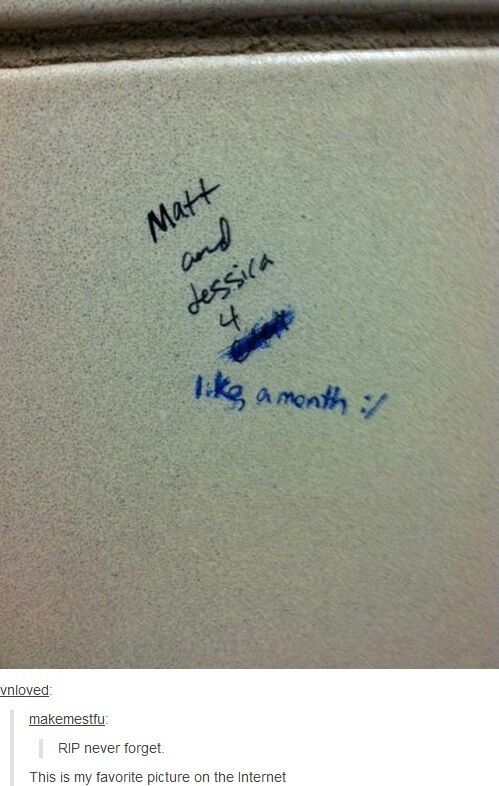 Matt
and
Jessica
4
like a month :/
vnloved:
makemestfu:
RIP never forget.
This is my favorite picture on the Internet